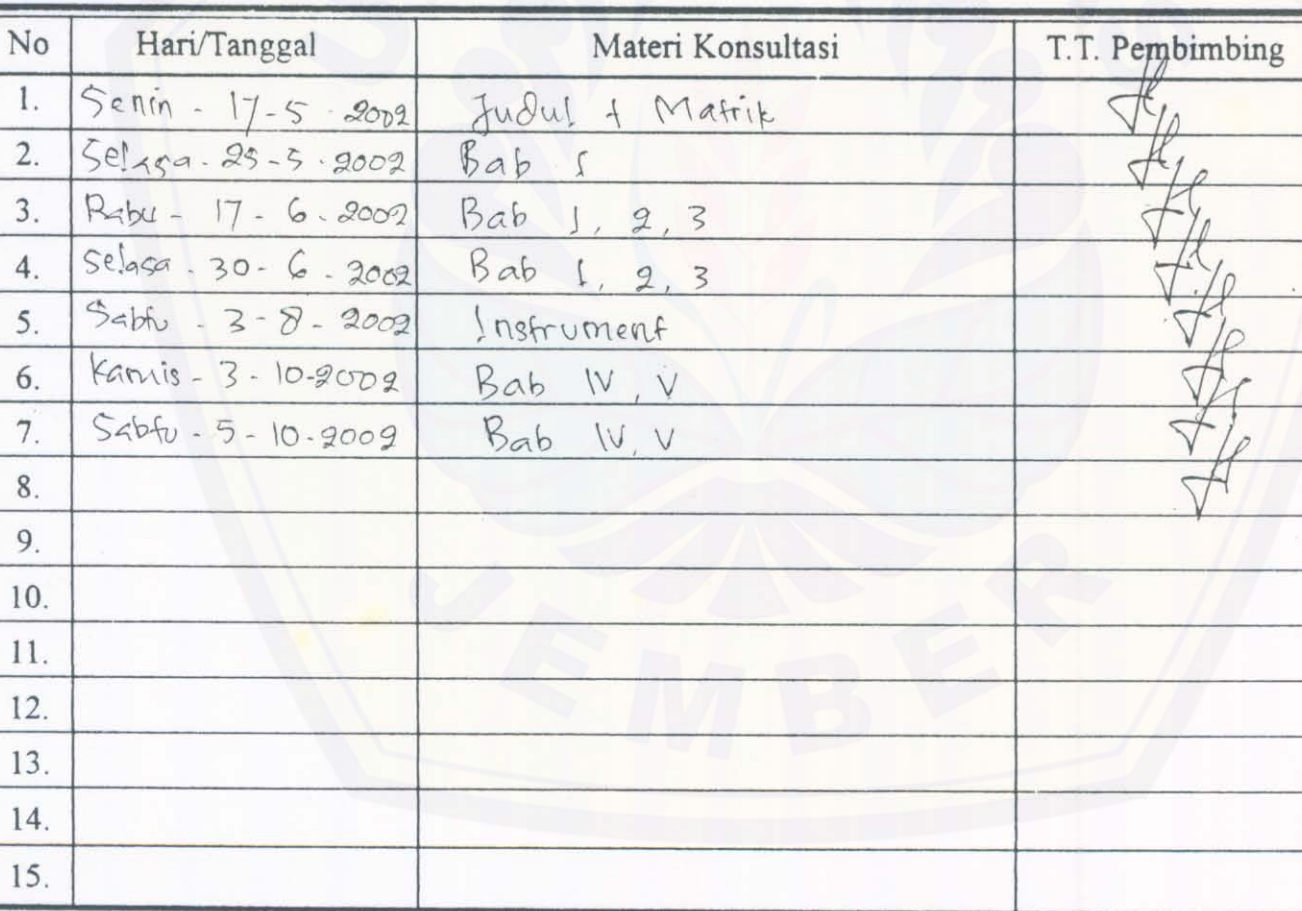 No Hari/Tanggal Materi Konsultasi T.T. Pembimbing
1. Senin - 17-5-2002 Judul + Matrik
2. Selasa - 25-5-2002 Bab I
3. Rabu - 17-6-2002 Bab 1, 2, 3
4. Selasa - 30-6-2002 Bab 1, 2, 3
5. Sabtu - 3-8-2002 Instrument
6. Kamis - 3-10-2002 Bab IV, V
7. Sabtu - 5-10-2002 Bab IV, V
8.
9.
10.
11.
12.
13.
14.
15.
JEMBER